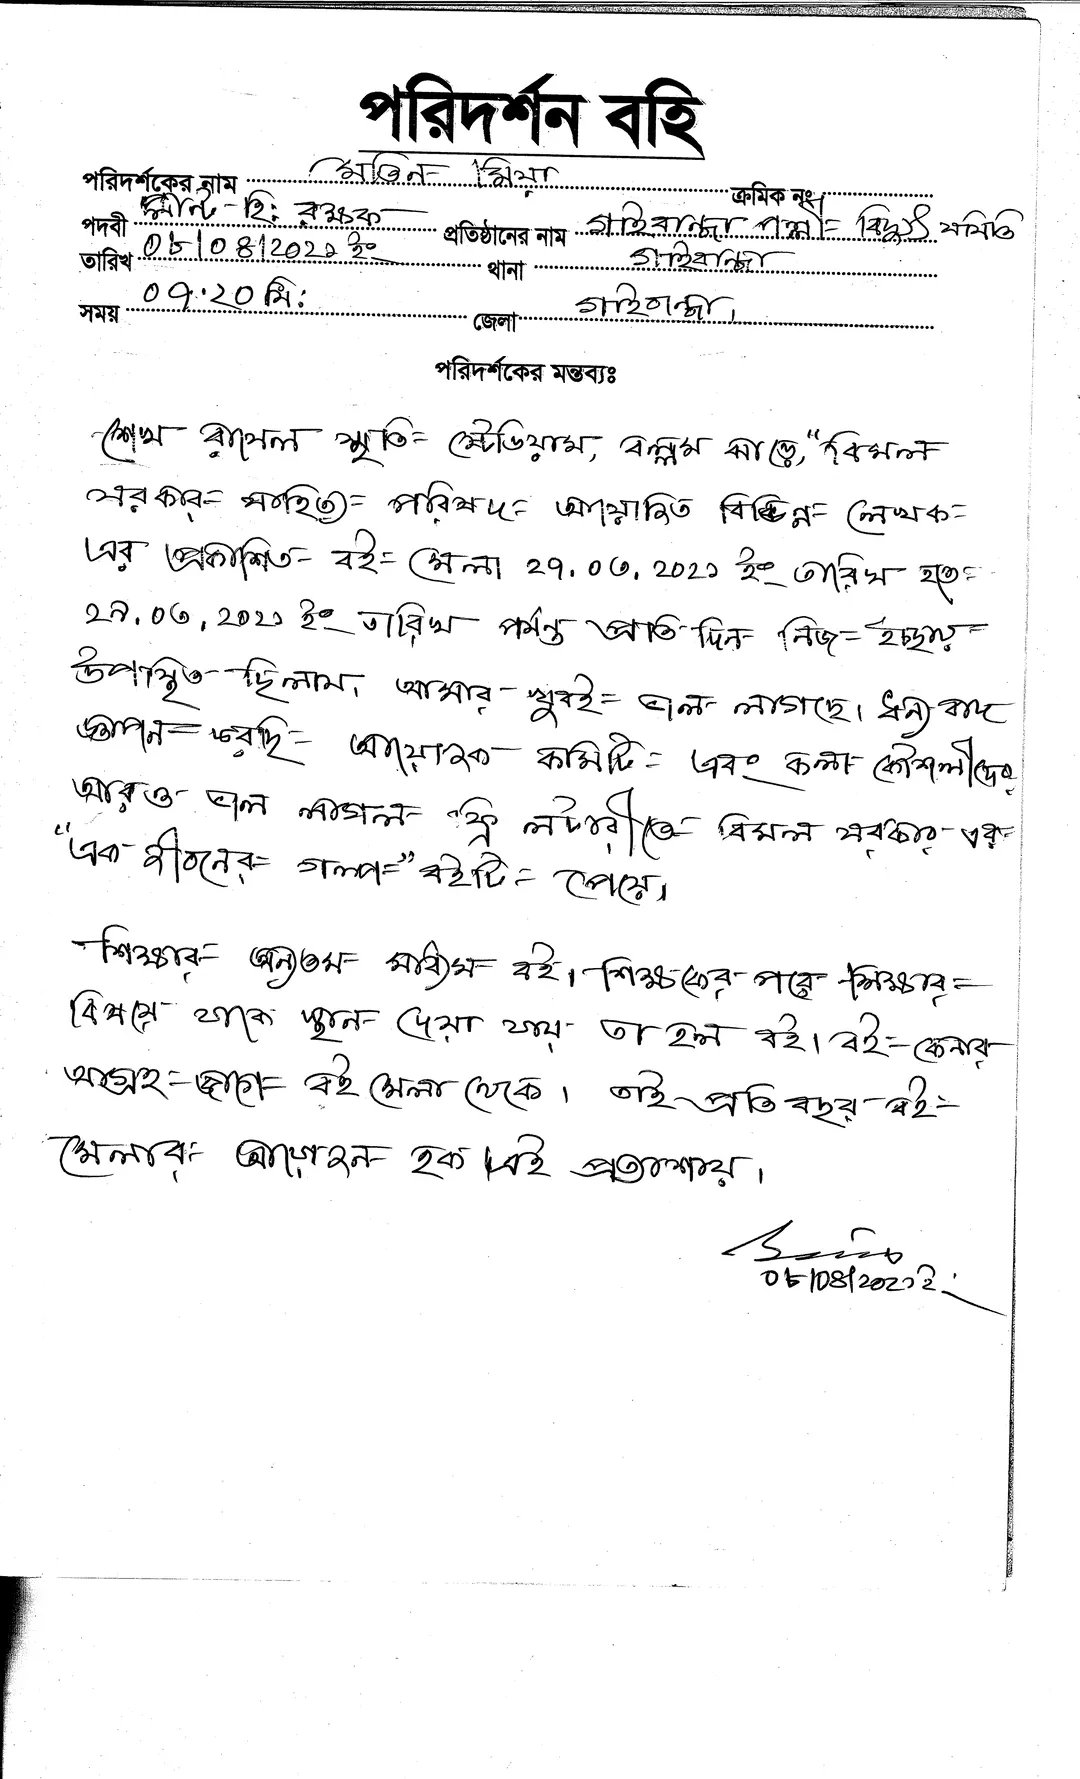 পরিদর্শন বহি
পরিদর্শকের নাম মতিন মিয়া ক্রমিক নংঃ
পদবী হিঃ রক্ষক প্রতিষ্ঠানের নাম গাইবান্ধা পল্লী বিদ্যুৎ সমিতি
তারিখ ০৮/০৪/২০২১ ইং থানা গাইবান্ধা
সময় ০৭.২০ মিঃ জেলা গাইবান্ধা।
পরিদর্শকের মন্তব্যঃ
শেখ রাসেল স্মৃতি স্টেডিয়াম, বল্লম ঝাড়ে, "বিমল
সরকার সাহিত্য পরিষদ আয়োজিত বিভিন্ন লেখক
এর প্রকাশিত বই মেলা ২৭.০৩.২০২১ ইং তারিখ হতে
২৯.০৩.২০২১ ইং তারিখ পর্যন্ত প্রতি দিন নিজ ইচ্ছায়
উপস্থিত ছিলাম। আমার খুবই ভাল লাগছে। ধন্যবাদ
জ্ঞাপন করছি আয়োজক কমিটি এবং কলা কৌশলীদের
আরও ভাল লাগল ফ্রি লটারীতে বিমল সরকার এর
"এক জীবনের গল্প" বইটি পেয়ে।
শিক্ষার অন্যতম মাধ্যম বই। শিক্ষকের পরে শিক্ষার
বিষয়ে যাকে স্থান দেয়া যায় তা হল বই। বই কেনার
আগ্রহ জাগে বই মেলা থেকে। তাই প্রতি বছর বই
মেলার আয়োজন হক এই প্রত্যাশায়।
০৮/০৪/২০২১ ইং